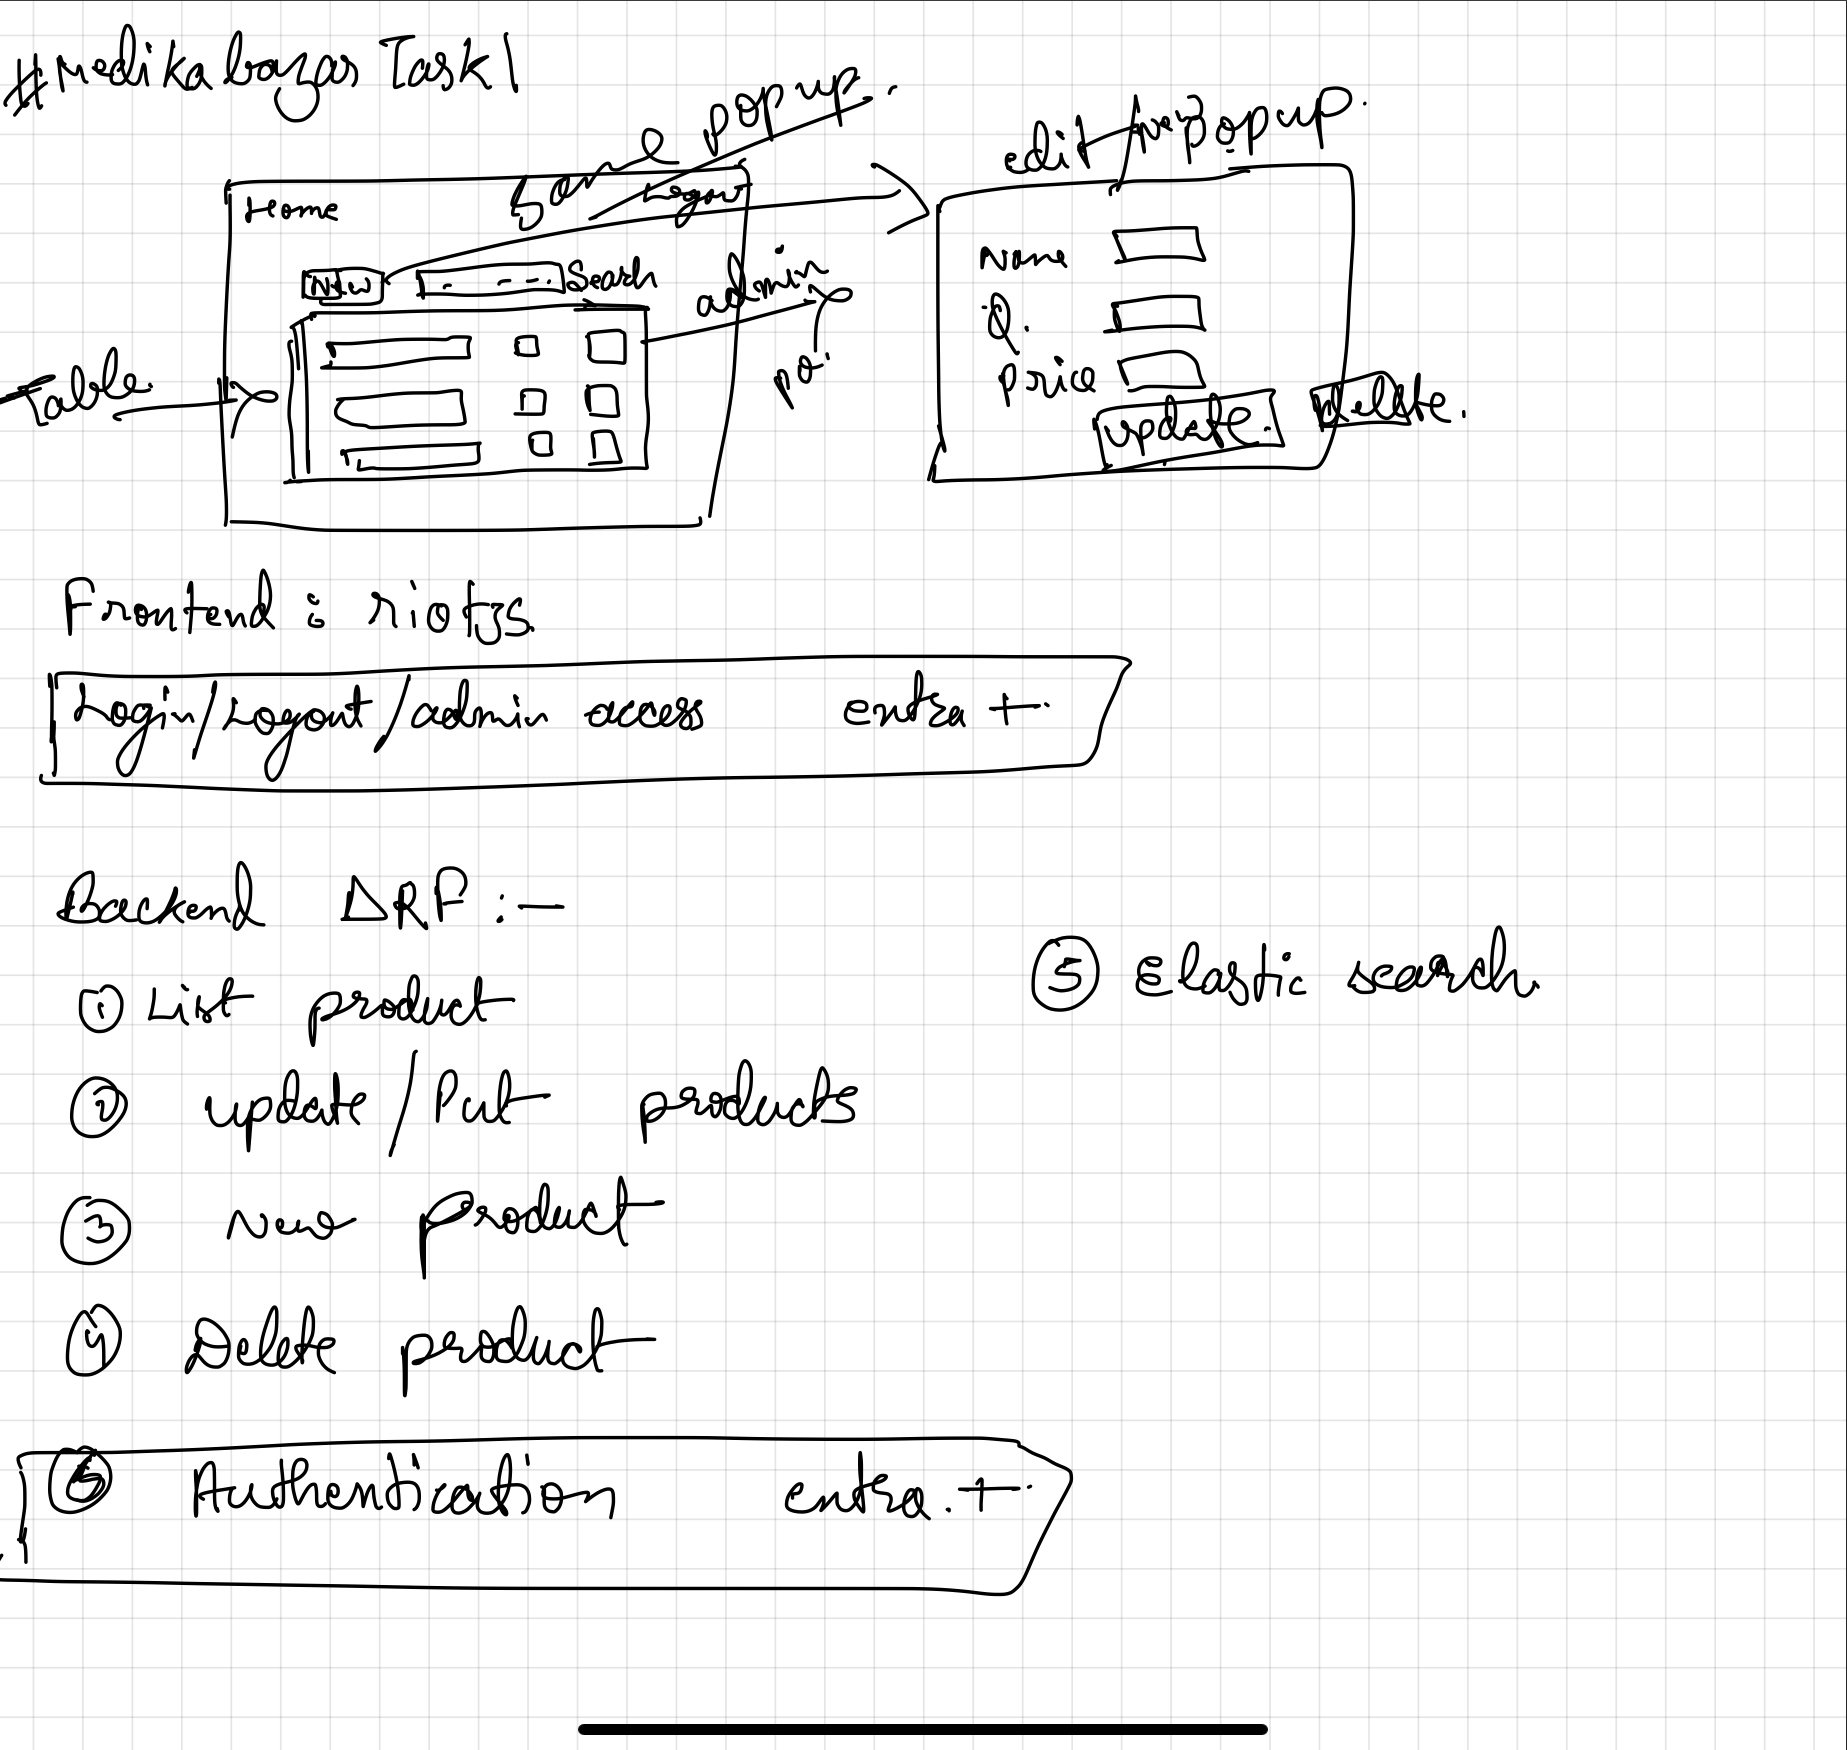 #Medikabazar Task 1
same popup.
edit/new Popup.
Home
Logout
New
Search
admin
Table
po.
Name
Q.
price
update.
Delete.
Frontend : riotjs
Login/Logout/admin access extra +
Backend DRF :-
① List product
⑤ Elastic search
② update/Put products
③ New product
④ Delete product
⑥ Authentication extra. +